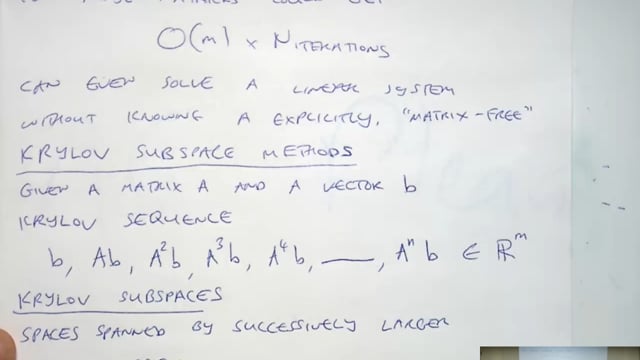 O(m) × NITERATIONS
CAN EVEN SOLVE A LINEAR SYSTEM
WITHOUT KNOWING A EXPLICITLY. "MATRIX-FREE"
KRYLOV SUBSPACE METHODS
GIVEN A MATRIX A AND A VECTOR b
KRYLOV SEQUENCE
b, Ab, A²b, A³b, A⁴b, ——, Aⁿb ∈ ℝᵐ
KRYLOV SUBSPACES
SPACES SPANNED BY SUCCESSIVELY LARGER